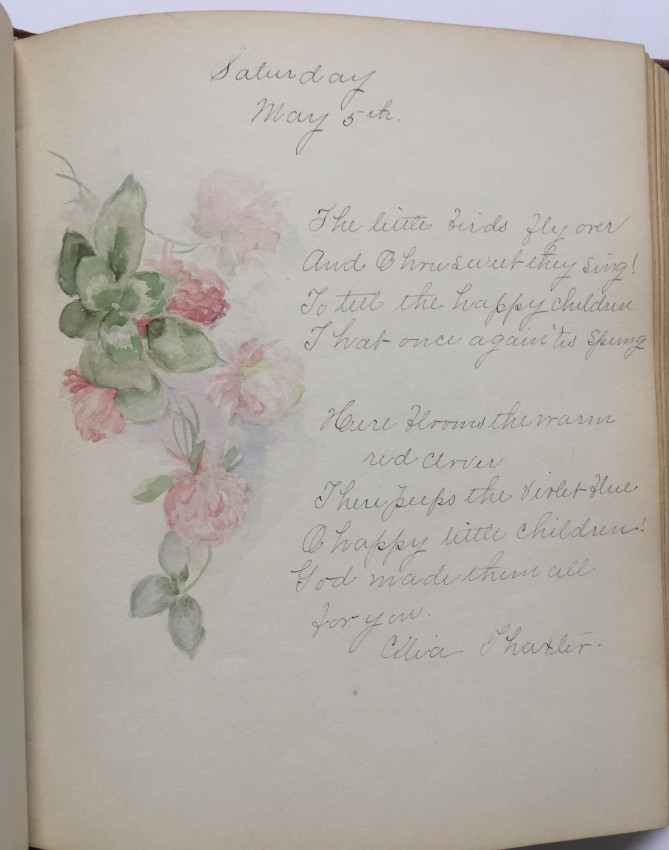 Saturday
May 5th.
The little birds fly over
And O how sweet they sing!
To tell the happy children
That once again 'tis Spring
Here blooms the warm
red clover
There peeps the violet blue
O happy little children!
God made them all
for you.
Celia Thaxter.